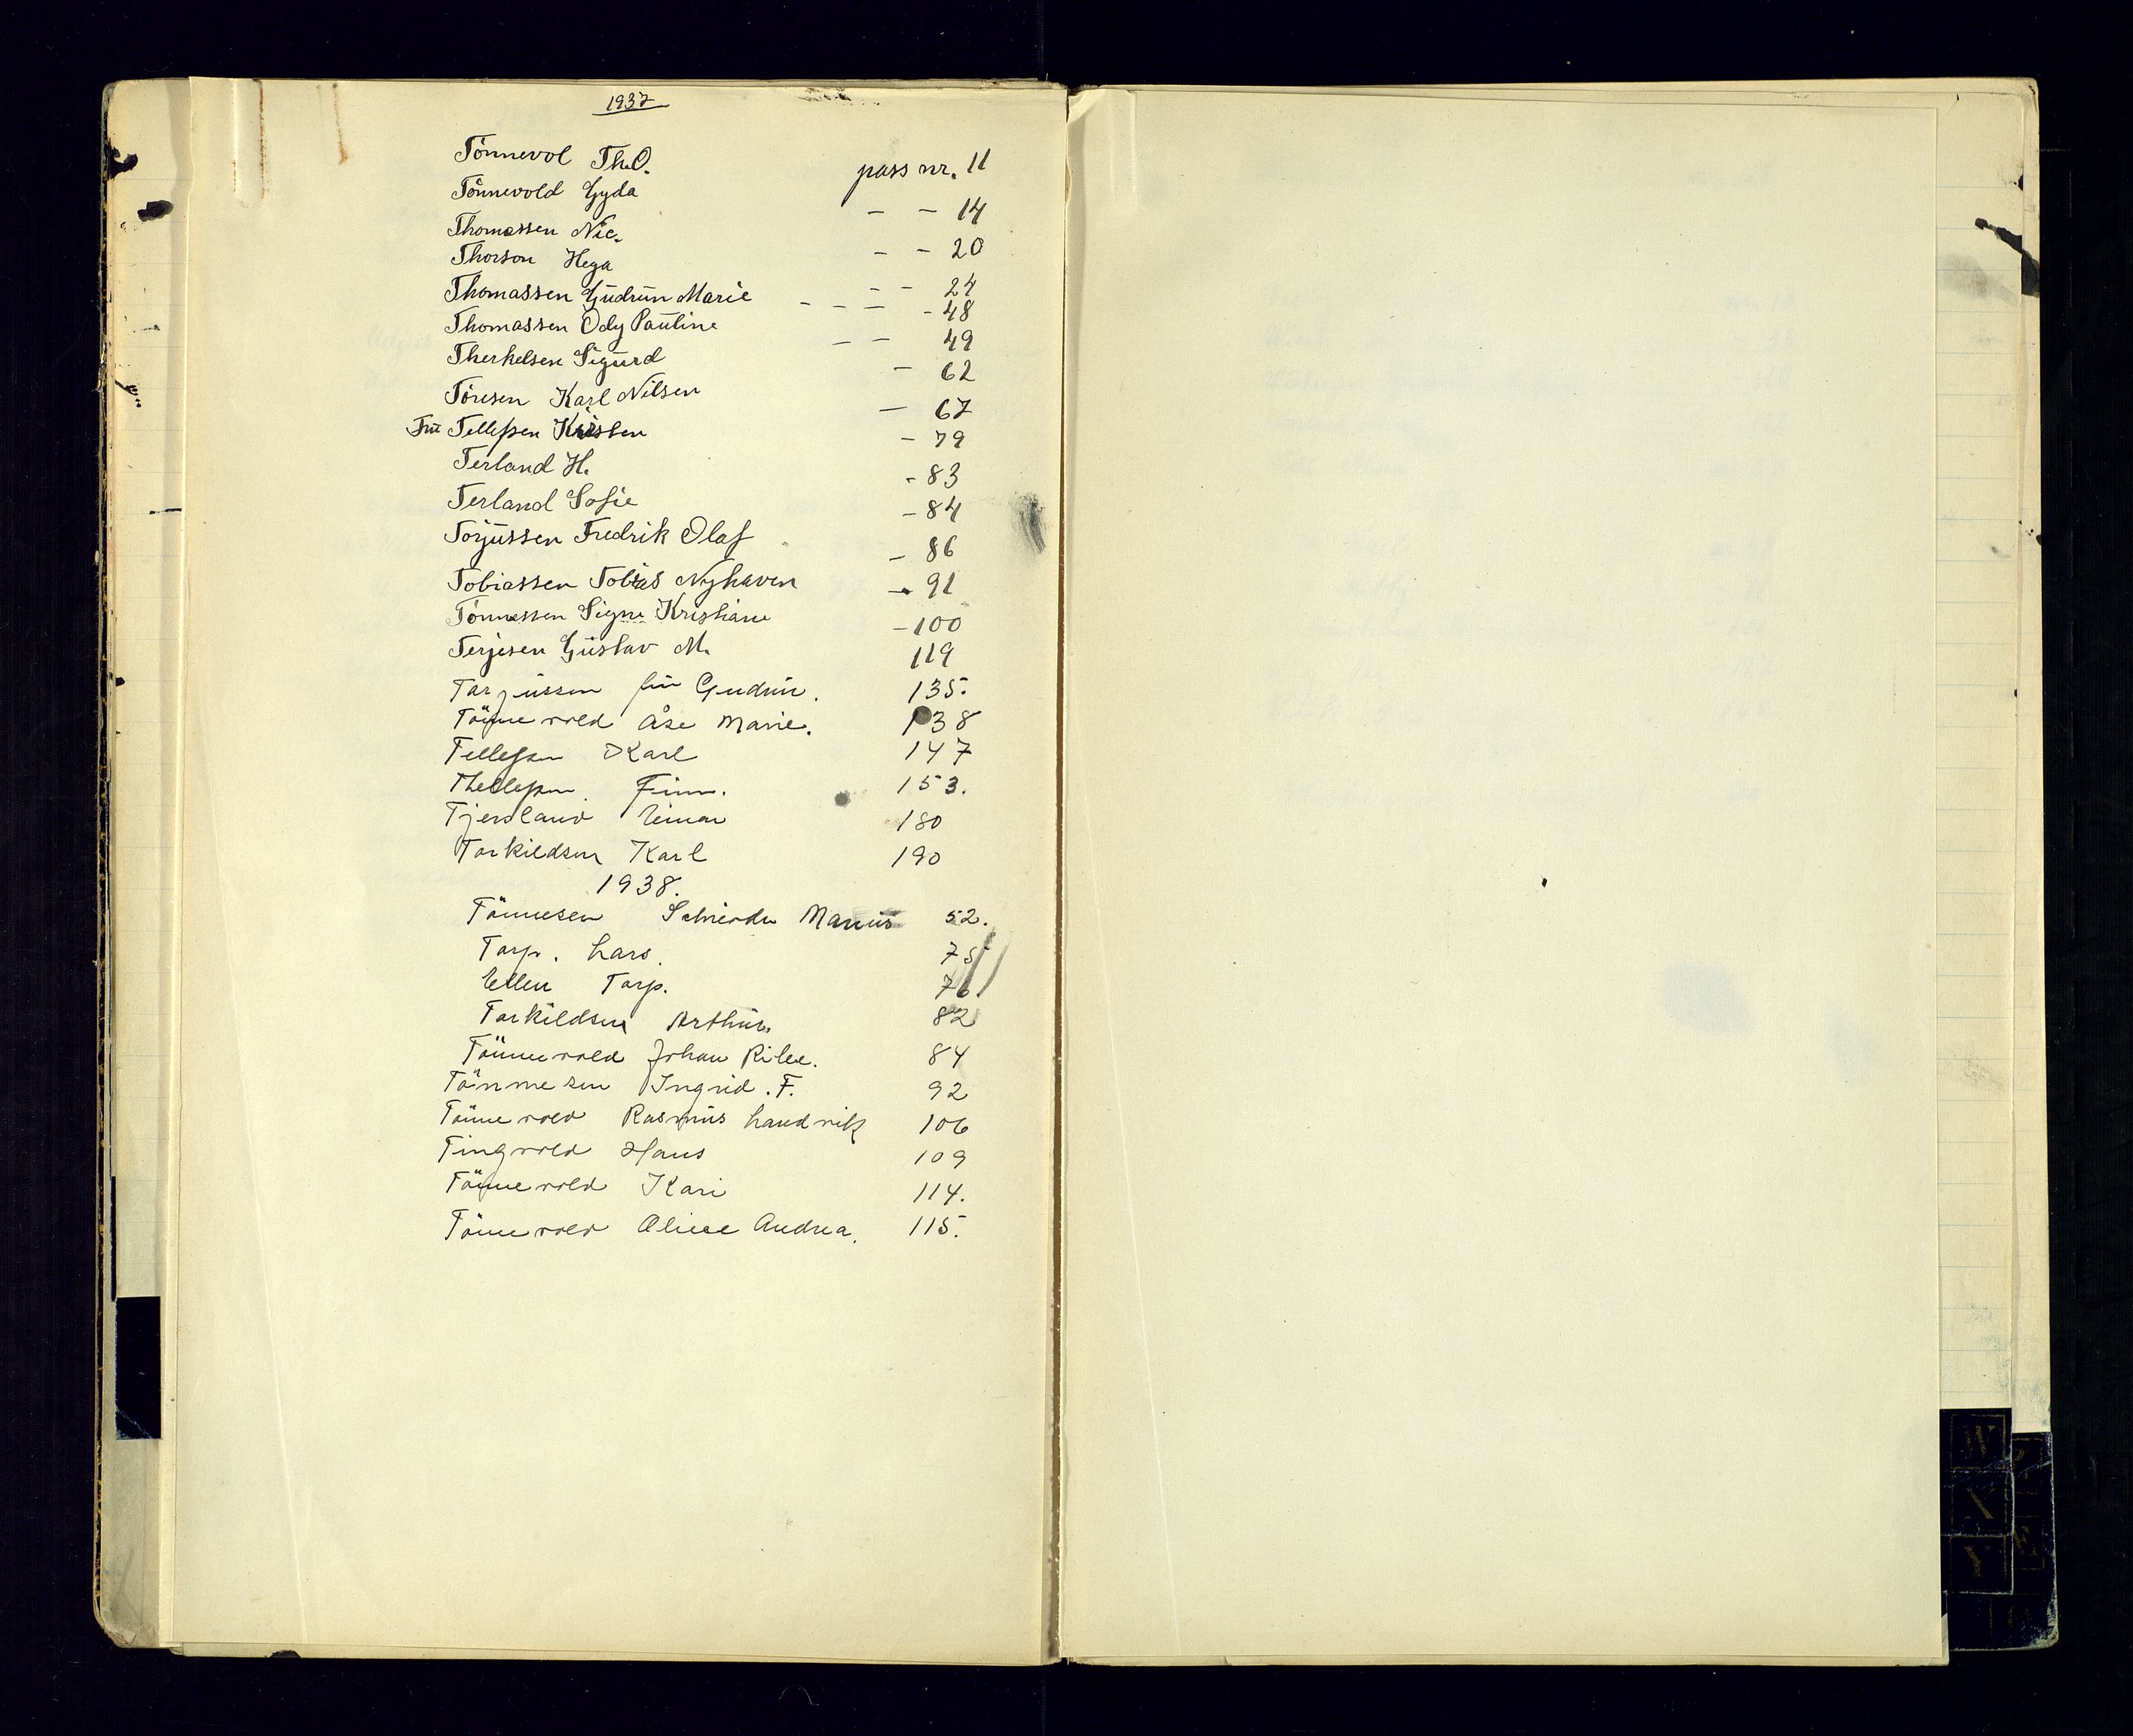 1937
Tönnevol Th.O. pass nr. 11
Tönnevold Gyda - - 14
Thomassen Nic. - - 20
Thorson Hega - - 24
Thomassen Gudrun Marie - - - - 48
Thomassen Ody Pauline - - 49
Therkelsen Sigurd - 62
Töresen Karl Nilsen - 67
Fru Tellefsen Kristen - 79
Terland H. - 83
Terland Sofie - 84
Torjussen Fredrik Olaf - 86
Tobiassen Tobias Nyhaven - 91
Tönnessen Signe Kristiane - 100
Terjesen Gustav M. 119
Torjussen fru Gudrun. 135.
Tönnevold Åse Marie. 138
Tellefsen Karl 147
Thellefsen Finn. 153.
Tjersland Einar 180
Torkildsen Karl 190
1938.
Tönnesen Marius 52.
Torp. Lars. 75
Ellen Torp. 76
Torkildsen Arthur. 82
Tönnevold Johan 84
Tönnesen Ingrid. F. 92
Tönnevold Rasmus Landvik 106
Tingvold Hans 109
Tönnevold Kari 114.
Tönnevold Andrea. 115.
W
Y